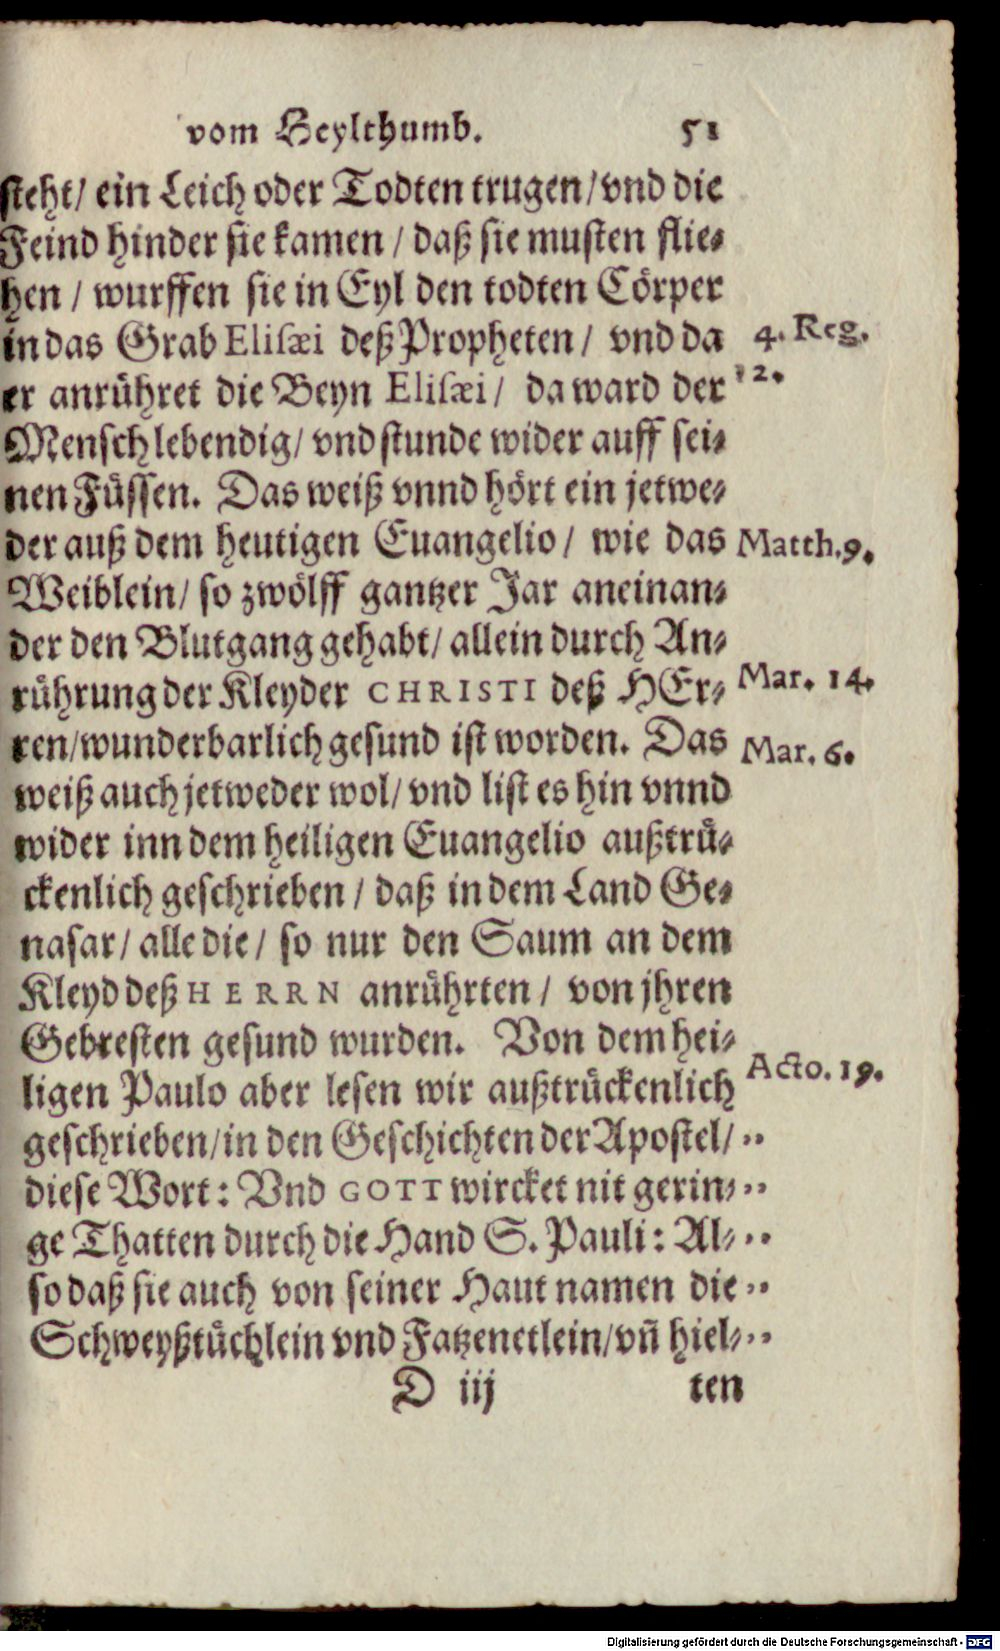 vom Heylthumb. 51
steht/ ein Leich oder Todten trugen/ vnd die
Feind hinder sie kamen / daß sie musten flie-
hen / wurffen sie in Eyl den todten Cörper
in das Grab Elisæi deß Propheten / vnd da 4. Reg.
er anrühret die Beyn Elisæi / da ward der 12.
Mensch lebendig/ vnd stunde wider auff sei-
nen Füssen. Das weiß vnnd hört ein jetwe-
der auß dem heutigen Euangelio / wie das Matth. 9.
Weiblein/ so zwölff gantzer Jar aneinan-
der den Blutgang gehabt/ allein durch An-
rührung der Kleyder CHRISTI deß HEr- Mar. 14.
ren/wunderbarlich gesund ist worden. Das Mar. 6.
weiß auch jetweder wol/ vnd list es hin vnnd
wider inn dem heiligen Euangelio außtrü-
ckenlich geschrieben / daß in dem Land Ge-
nasar/ alle die / so nur den Saum an dem
Kleyd deß HERRN anrührten / von jhren
Gebresten gesund wurden. Von dem hei-
ligen Paulo aber lesen wir außtrückenlich Acto. 19.
geschrieben/in den Geschichten der Apostel/ "
diese Wort: Vnd GOTT wircket nit gerin- "
ge Thatten durch die Hand S. Pauli: Al- "
so daß sie auch von seiner Haut namen die "
Schweyßtüchlein vnd Fatzenetlein/vñ hiel- "
D iij ten
Digitalisierung gefördert durch die Deutsche Forschungsgemeinschaft - DFG